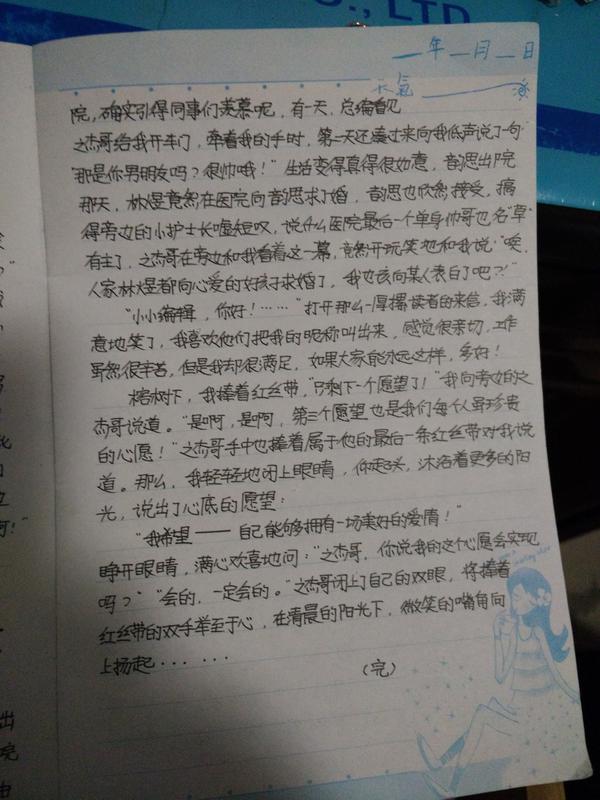 CO., LTD
年 月 日
天氣
院,确实引得同事们羡慕呢,有一天,总编看见
之杰哥给我开车门,牵着我的手时,第一天还凑过来向我低声说了句
"那是你男朋友吗?很帅哦!"生活变得真得很如意,韵思出院
那天,林煜竟然在医院向韵思求了婚,韵思也欣然接受,搞
得旁边的小护士长嘘短叹,说什么医院最后一个单身帅哥也名"草"
有主了,之杰哥在旁边和我看着这一幕,竟然开玩笑地和我说:"唉,
人家林煜都向心爱的好孩子求婚了,我也该向某人表白了吧?!"
"小小编辑,你好!……"打开那么一厚摞读者的来信,我满
意地笑了,我喜欢他们把我的昵称叫出来,感觉很亲切,工作
虽然很辛苦,但是我却很满足,如果大家能永远这样,多好!
榕树下,我捧着红丝带,"只剩下一个愿望了!"我向旁边的之
杰哥说道。"是啊,是啊,第三个愿望也是我们每个人最珍贵
的心愿!"之杰哥手中也捧着属于他的最后一条红丝带对我说
道。那么,我轻轻地闭上眼睛,低起头,沐浴着更多的阳
光,说出了心底的愿望:
"我希望——自己能够拥有一场美好的爱情!"
睁开眼睛,满心欢喜地问:"之杰哥,你说我的这个心愿会实现
吗?""会的,一定会的。"之杰哥闭上了自己的双眼,将捧着
红丝带的双手举至于心,在清晨的阳光下,微笑的嘴角向
上扬起……
(完)